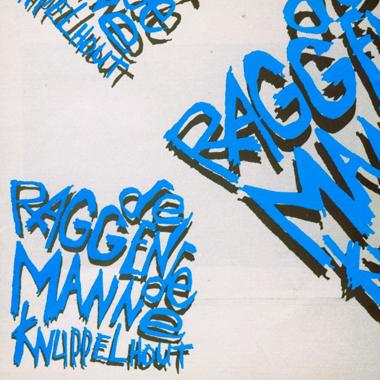 PPELHOUT
RAGGE
MAN
K
de
RAGGENde
MANNe
KNUPPELHOUT